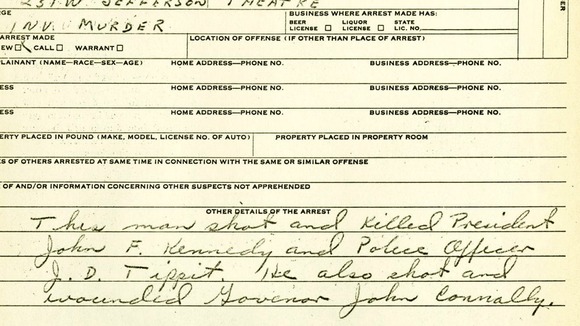 231 W. JEFFERSON THEATRE
GE
BUSINESS WHERE ARREST MADE HAS:
INV. MURDER
BEER LIQUOR STATE
LICENSE LICENSE LIC. NO.
ARREST MADE
LOCATION OF OFFENSE (IF OTHER THAN PLACE OF ARREST)
EW CALL WARRANT
PLAINANT (NAME—RACE—SEX—AGE) HOME ADDRESS—PHONE NO. BUSINESS ADDRESS—PHONE NO.
ESS HOME ADDRESS—PHONE NO. BUSINESS ADDRESS—PHONE NO.
ESS HOME ADDRESS—PHONE NO. BUSINESS ADDRESS—PHONE NO.
ERTY PLACED IN POUND (MAKE, MODEL, LICENSE NO. OF AUTO) PROPERTY PLACED IN PROPERTY ROOM
ES OF OTHERS ARRESTED AT SAME TIME IN CONNECTION WITH THE SAME OR SIMILAR OFFENSE
OF AND/OR INFORMATION CONCERNING OTHER SUSPECTS NOT APPREHENDED
OTHER DETAILS OF THE ARREST
This man shot and killed President
John F. Kennedy and Police Officer
J. D. Tippit. He also shot and
wounded Govenor John Connally.